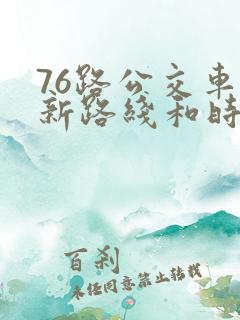 76路公交车
新路线和时
百刹
未经同意禁止转载